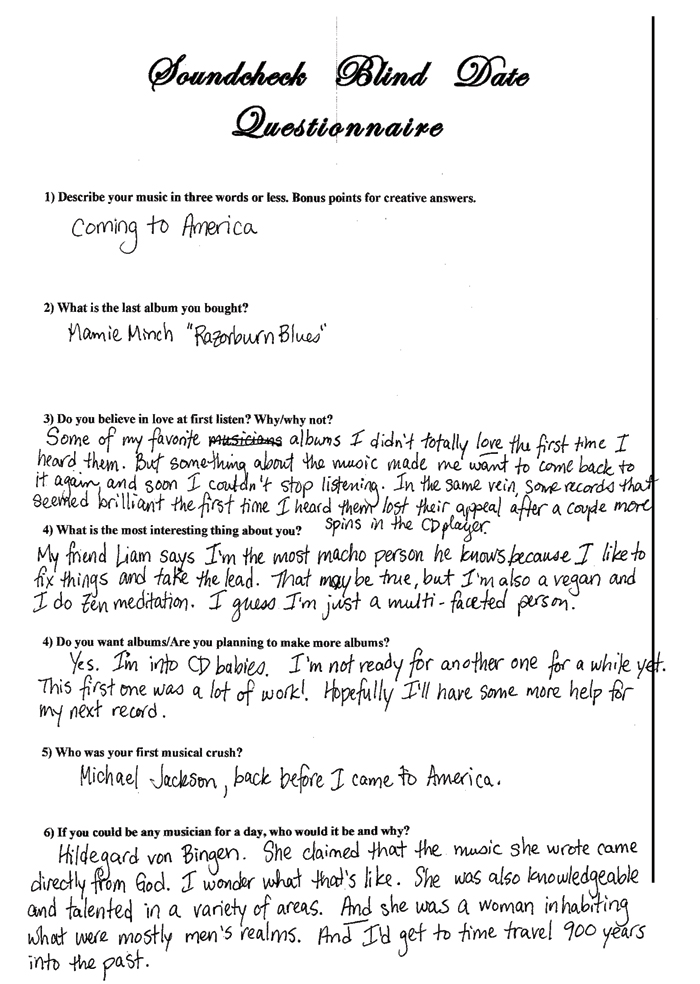 Soundcheck Blind Date
Questionnaire
1) Describe your music in three words or less. Bonus points for creative answers.
Coming to America
2) What is the last album you bought?
Mamie Minch "Razorburn Blues"
3) Do you believe in love at first listen? Why/why not?
Some of my favorite musicians albums I didn't totally love the first time I
heard them. But something about the music made me want to come back to
it again, and soon I couldn't stop listening. In the same vein, some records that
seemed brilliant the first time I heard them lost their appeal after a couple more
spins in the CD player.
4) What is the most interesting thing about you?
My friend Liam says I'm the most macho person he knows because I like to
fix things and take the lead. That may be true, but I'm also a vegan and
I do Zen meditation. I guess I'm just a multi-faceted person.
4) Do you want albums/Are you planning to make more albums?
Yes. I'm into CD babies. I'm not ready for another one for a while yet.
This first one was a lot of work! Hopefully I'll have some more help for
my next record.
5) Who was your first musical crush?
Michael Jackson, back before I came to America.
6) If you could be any musician for a day, who would it be and why?
Hildegard von Bingen. She claimed that the music she wrote came
directly from God. I wonder what that's like. She was also knowledgeable
and talented in a variety of areas. And she was a woman inhabiting
what were mostly men's realms. And I'd get to time travel 900 years
into the past.